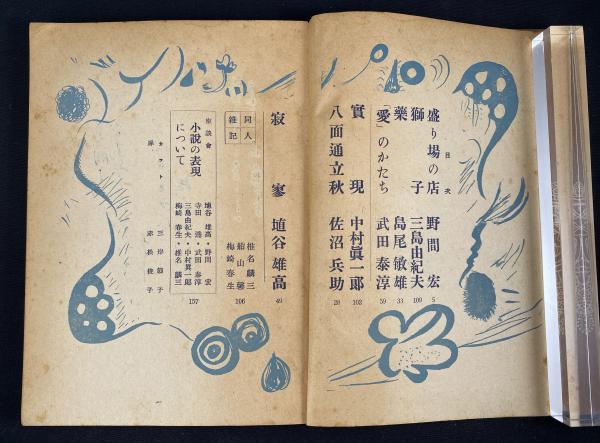 目次
盛り場の店 野間宏 5
獅子 三島由紀夫 109
藥 島尾敏雄 33
「愛」のかたち 武田泰淳 59
實現 中村眞一郎 102
八面通立秋 佐沼兵助 28
寂寥 埴谷雄高 49
同人雑記
椎名麟三
船山馨
梅崎春生
106
座談會
小説の表現について
埴谷雄高・野間宏
寺田透・武田泰淳
三島由紀夫・中村眞一郎
梅崎春生・椎名麟三
157
カット 三岸節子
扉 赤松俊子